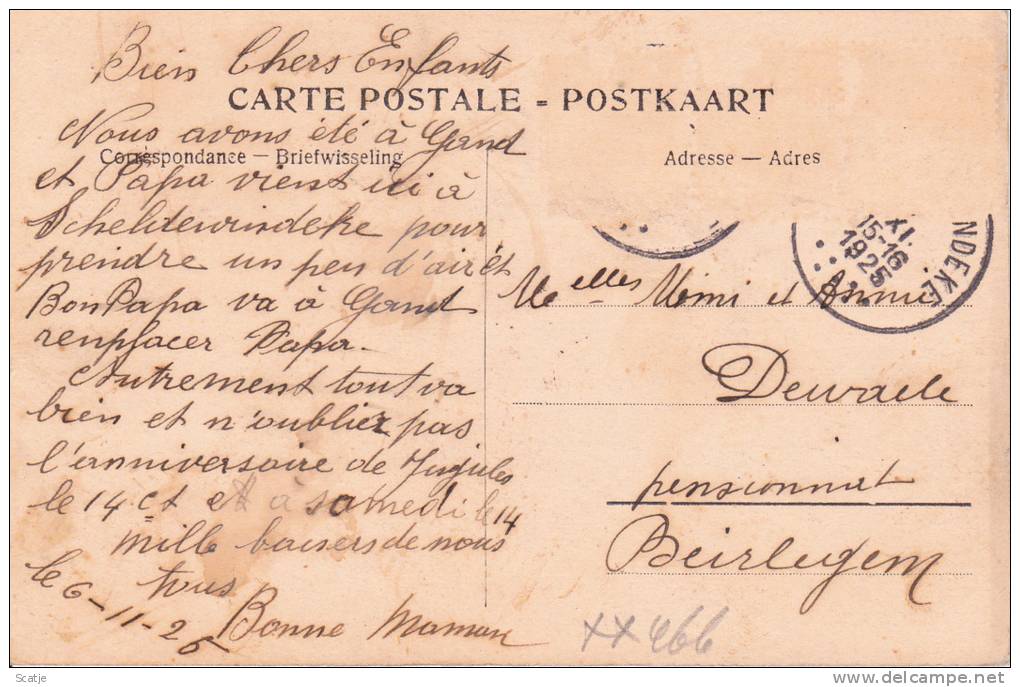 Bien Chers Enfants
CARTE POSTALE = POSTKAART
Correspondance — Briefwisseling
Adresse — Adres
Nous avons été à Gand
et Papa vient ici à
Scheldewindeke pour
prendre un peu d'air et
Bon Papa va à Gand
remplacer Papa.
Autrement tout va
bien et n'oublier pas
l'anniversaire de
le 14 ct et à samedi le 14
mille baisers de nous
tous
le 6-11-25
Bonne Maman
NDEKE
XI.
15-16
1925
Melles Mimi et Annie
Dewaele
pensionnat
Beirlegem
XX466
Scatje
delcampe.net